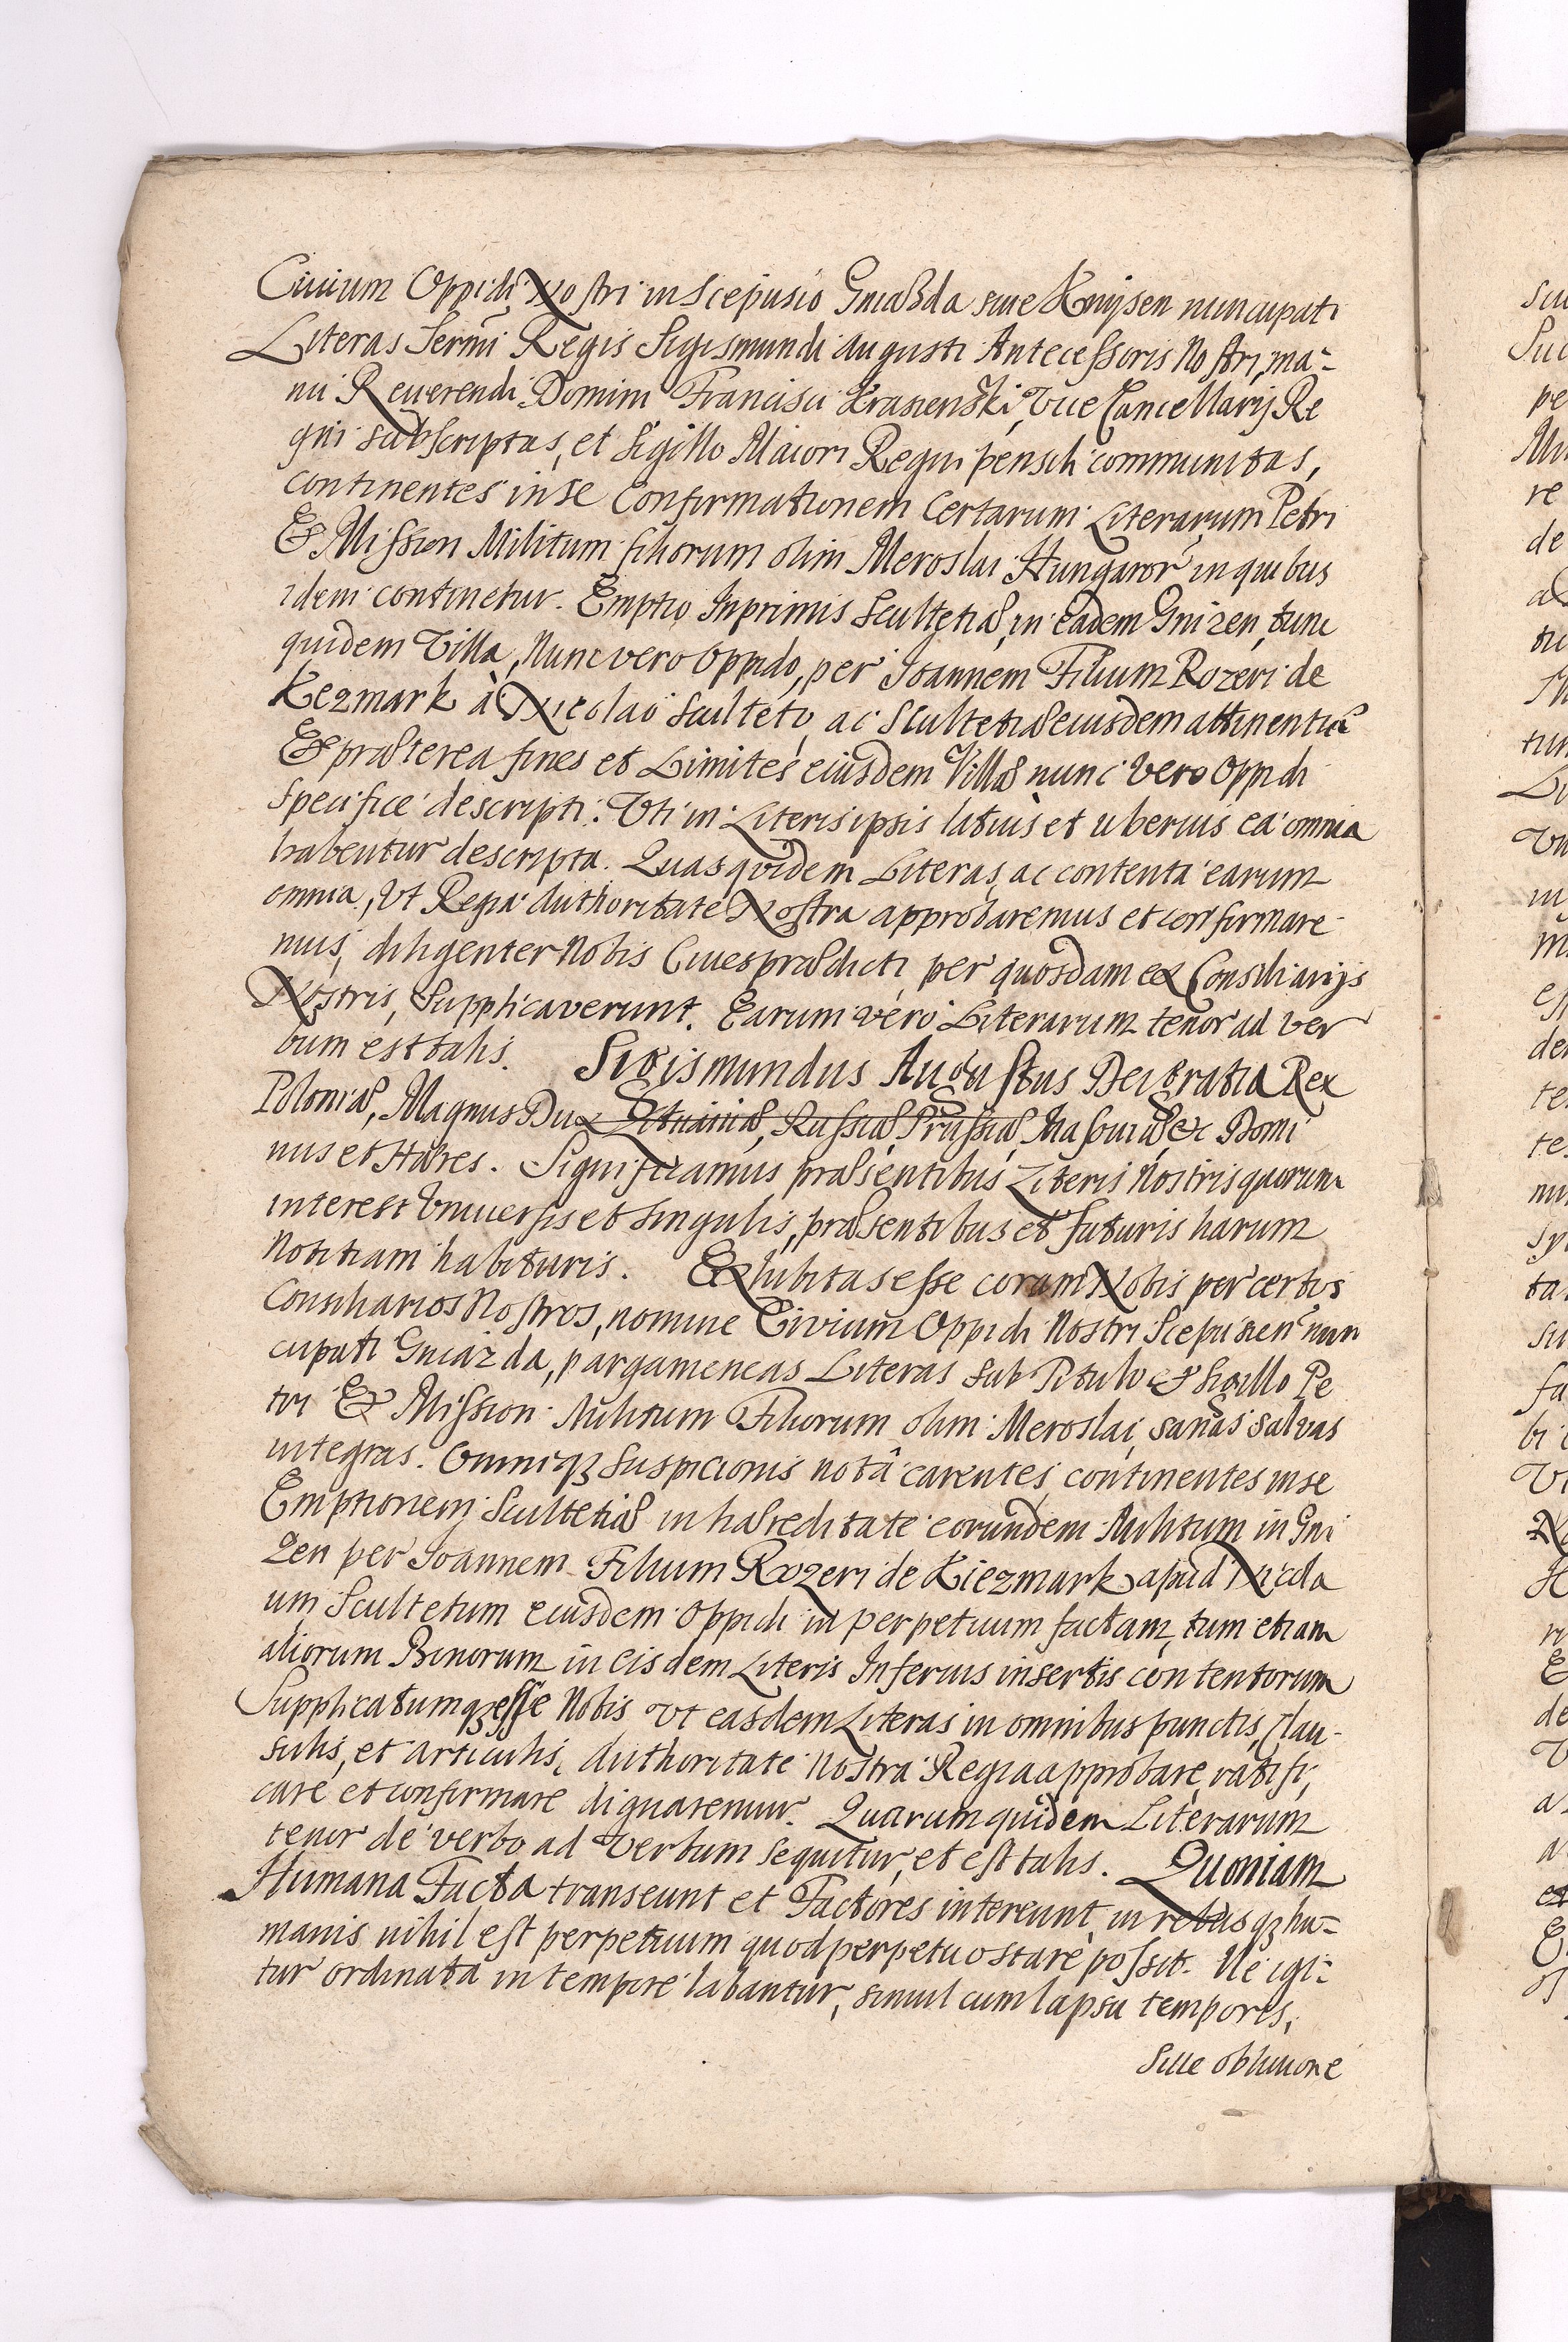 Ciuium Oppidi Nostri in Scepusio Gniaßda siue Knijsen nuncupati
Literas Sermi Regis Sigismundi Augusti Antecessoris Nostri, ma-
nu Reuerendi Domini Francisci Krasienski, Vice Cancellarij Re
gni subscriptas, et Sigillo Maiori Regni pensili communitas,
continentes in se Confirmationem Certarum Literarum Petri
Et Mission Militum filiorum olim Meroslai Hungaror in quibus
idem continetur. Emptio Inprimis Scultetiæ, in eadem Gnizen, tunc
quidem Villa, Nunc vero Oppido, per Joannem Filium Rozeri de
Kezmark à Nicolao Sculteto, ac Scultetiæ eiusdem attinentiæ
Et præterea fines et Limites eiusdem Villæ nunc Vero Oppidi
specifice descripti: Vti in Literis ipsis latius et uberius ea omnia
habentur descripta. Quas quidem Literas, ac contenta earum
omnia, Vt Regia Authoritate Nostra approbaremus et confirmare
mus, diligenter Nobis Ciues prædicti, per quosdam ex Consiliarijs
Nostris, Supplicaverunt. Earum vero Literarum tenor ad ver
bum est talis. Sigismundus Augustus Dei Gratia Rex
Poloniæ, Magnus Dux Lituaniæ, Russiæ, Prussiæ, Masouiæ &c Domi
nus et Hæres. Significamus præsentibus Literis Nostris quorum
interest Vniuersis et singulis, præsentibus et futuris harum
Notitiam habituris. Exhibitas esse coram Nobis per certos
Consiliarios Nostros, nomine Civium Oppidi Nostri Scepusien nun
cupati Gniazda, pargameneas Literas sub Titulo et Sigillo Pe
tri Et Mission Militum Filiorum olim Meroslai, sanas salvas
integras. Omniqꝫ suspicionis notâ carentes, continentes in se
Emptionem Scultetiæ in hæreditate eorundem Militum in Gni
zen per Joannem Filium Rozeri de Kiezmark apud Nicola
um Scultetum eiusdem Oppidi in perpetuum factam, tum etiam
aliorum Bonorum in eisdem Literis Inferius insertis contentorum
Supplicatumqꝫ esse Nobis Vt easdem Literas in omnibus punctis, Clau-
sulis, et articulis, Authoritate Nostra Regia approbare, ratifi,
care et confirmare dignaremur. Quarum quidem Literarum
tenor de verbo ad Verbum sequitur, et est talis. Quoniam
Humana Facta transeunt et Factores intereunt, in rebusqꝫ hu-
manis nihil est perpetuum quod perpetuo stare possit. Ne igi-
tur ordinata in tempore labantur, simul cum lapsu temporis,
siue obliuione